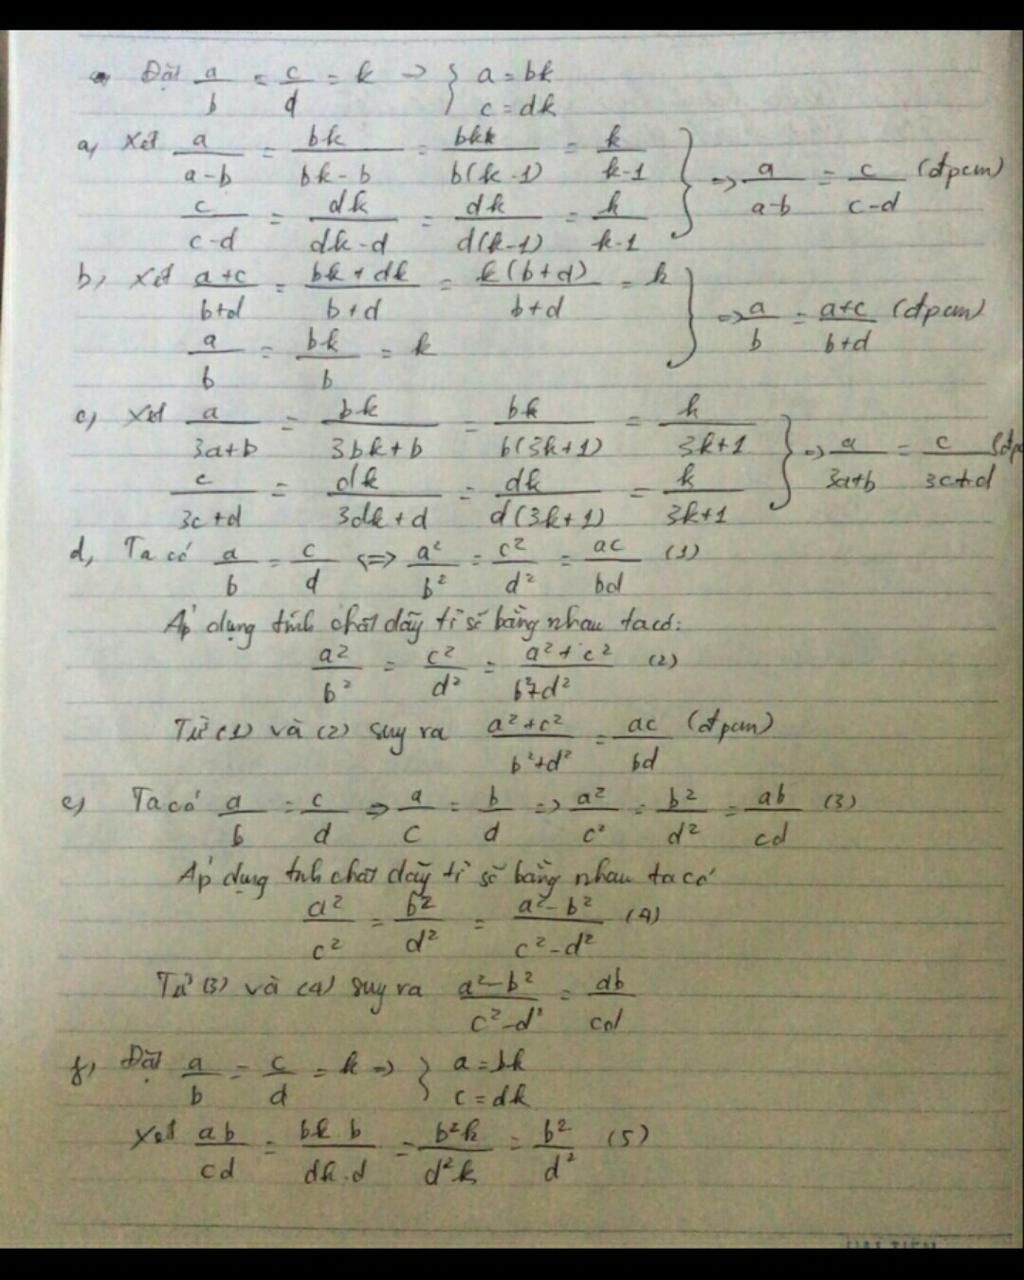 Đặt a/b = c/d = k => { a = bk
c = dk
a, Xét a/(a-b) = bk/(bk-b) = bkk/(b(k-1)) = k/(k-1) } => a/(a-b) = c/(c-d) (đpcm)
c/(c-d) = dk/(dk-d) = dk/(d(k-1)) = k/(k-1)
b, Xét (a+c)/(b+d) = (bk+dk)/(b+d) = k(b+d)/(b+d) = k } => a/b = (a+c)/(b+d) (đpcm)
a/b = bk/b = k
c, Xét a/(3a+b) = bk/(3bk+b) = bk/(b(3k+1)) = k/(3k+1) } => a/(3a+b) = c/(3c+d) (đp
c/(3c+d) = dk/(3dk+d) = dk/(d(3k+1)) = k/(3k+1)
d, Ta có a/b = c/d <=> a²/b² = c²/d² = ac/bd (1)
Áp dụng tính chất dãy tỉ số bằng nhau ta có:
a²/b² = c²/d² = (a²+c²)/(b²+d²) (2)
Từ (1) và (2) suy ra (a²+c²)/(b²+d²) = ac/bd (đpcm)
e, Ta có a/b = c/d => a/c = b/d => a²/c² = b²/d² = ab/cd (3)
Áp dụng tính chất dãy tỉ số bằng nhau ta có
a²/c² = b²/d² = (a²-b²)/(c²-d²) (4)
Từ (3) và (4) suy ra (a²-b²)/(c²-d²) = ab/cd
f, Đặt a/b = c/d = k => { a = bk
c = dk
Xét ab/cd = bk.b/dk.d = b²k/d²k = b²/d² (5)